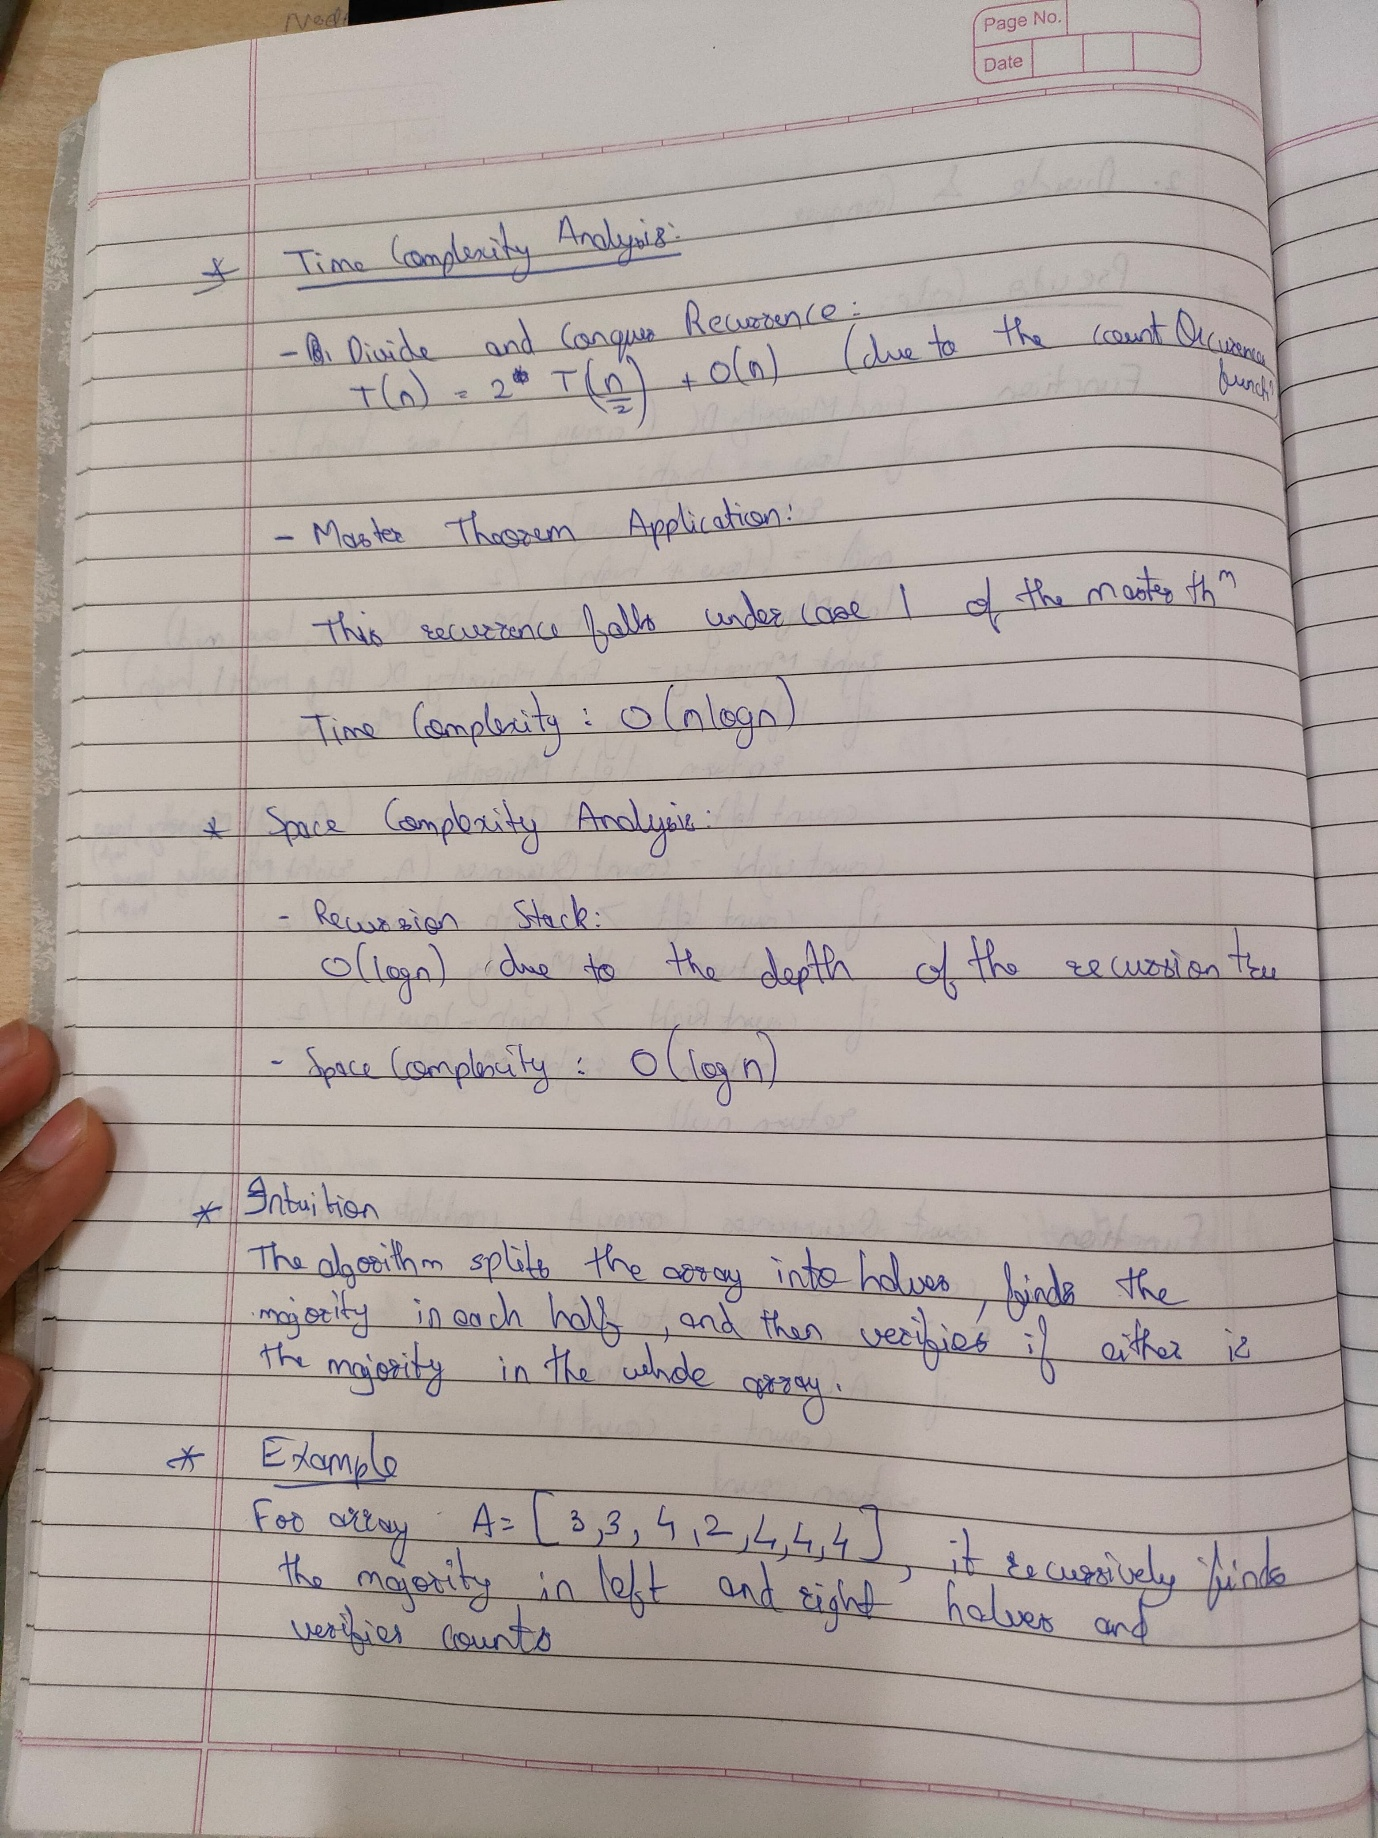 Page No.
Date
* Time Complexity Analysis:
- Divide and Conquer Recurrence:
T(n) = 2* T(n/2) + O(n) (due to the count Occurence
funct
- Master Theorem Application:
This recurrence falls under case 1 of the master thm
Time Complexity : O(nlogn)
* Space Complexity Analysis:
- Recursion Stack:
O(logn) due to the depth of the recursion tree
- Space Complexity : O(log n)
* Intuition
The algorithm splits the array into halves, finds the
majority in each half, and then verifies if either is
the majority in the whole array.
* Example
For array A= [3,3,4,2,4,4,4], it recursively finds
the majority in left and right halves and
verifies counts